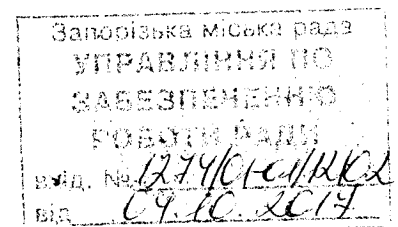 Запорізька міська рада
УПРАВЛІННЯ ПО
ЗАБЕЗПЕЧЕННЮ
РОБОТИ РАДИ
вхід. № 1274/01-01/12/02
від 04.10.2017